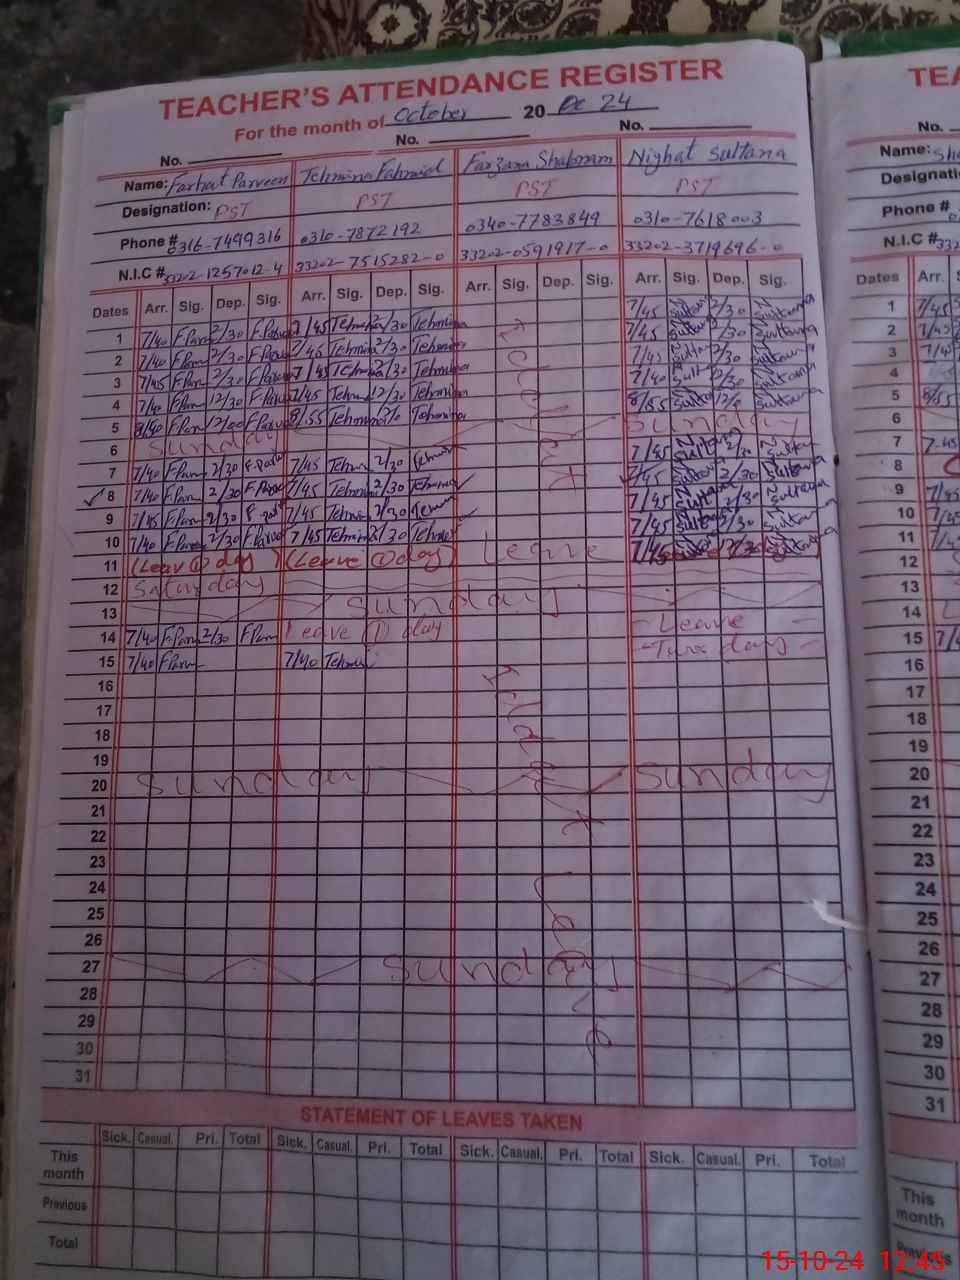 TEACHER'S ATTENDANCE REGISTER
For the month of October 20 24
No. No. No.
Name: Farhat Parveen Tehmina Fahmid Farzana Shabnam Nighat Sultana
Designation: PST PST PST PST
Phone # 0316-7499316 0310-7872192 0340-7783849 0310-7618003
N.I.C # 33202-1257012-4 33202-7515282-0 33202-0591917-0 33202-3719696-0
Dates Arr. Sig. Dep. Sig. Arr. Sig. Dep. Sig. Arr. Sig. Dep. Sig. Arr. Sig. Dep. Sig.
1 7/40 F.Parv 2/30 F.Parv 7/45 Tehmina 2/30 Tehmina 7/45 N Sultana 2/30 N Sultana
2 7/40 F.Parv 2/30 F.Parve 7/45 Tehmina 2/30 Tehmina 7/45 Sultana 2/30 Sultana
3 7/45 F.Parv 2/30 F.Parve 7/45 Tehmina 2/30 Tehmina 7/45 Sultana 2/30 Sultana
4 7/40 F.Parv 12/30 F.Parve 7/45 Tehmina 12/30 Tehmina 7/40 Sultana 12/30 Sultana
5 8/40 F.Parv 12/00 F.Parve 8/55 Tehmina Tehmina 8/55 Sultana Sultana
6 Sunday Sunday
7 7/40 F.Parv 2/30 F.Parv 7/45 Tehmi 2/30 Tehmina 7/45 N Sultana 2/30 N Sultana
8 7/40 F.Parv 2/30 F.Parv 7/45 Tehmina 2/30 Tehmina 7/45 Sultana 2/30 Sultana
9 7/45 F.Parv 2/30 7/45 Tehmina 2/30 7/45 Sultana 2/30 Sultana
10 7/40 F.Parv 2/30 F.Parve 7/45 Tehmina 2/30 Tehmina 7/45 Sultana 2/30 Sultana
11 (Leave 1 day) (Leave 1 day) Leave 7/45 2/30 Sultana
12 Saturday
13 Sunday
14 7/40 F.Parv 2/30 F.Parv Leave 1 day - Leave -
15 7/40 F.Parv 7/40 Tehmi - Two days -
16
17
18
19
20 Sunday Sunday
21
22
23
24
25
26
Leave
27 Sunday
28
29
30
31
STATEMENT OF LEAVES TAKEN
Sick. Casual. Pri. Total Sick. Casual. Pri. Total Sick. Casual. Pri. Total Sick. Casual. Pri. Total
This month
Previous
Total
TEA
No.
Name: Sh
Designatio
Phone #
N.I.C #332
Dates Arr.
1 7/45
2 7/45
3 7/45
4
5 8/55
6
7 7-45
8
9 7/45
10 7/45
11 7/45
12
13
14
15 7/4
16
17
18
19
20
21
22
23
24
25
26
27
28
29
30
31
This month
Previous
15-10-24 12:45